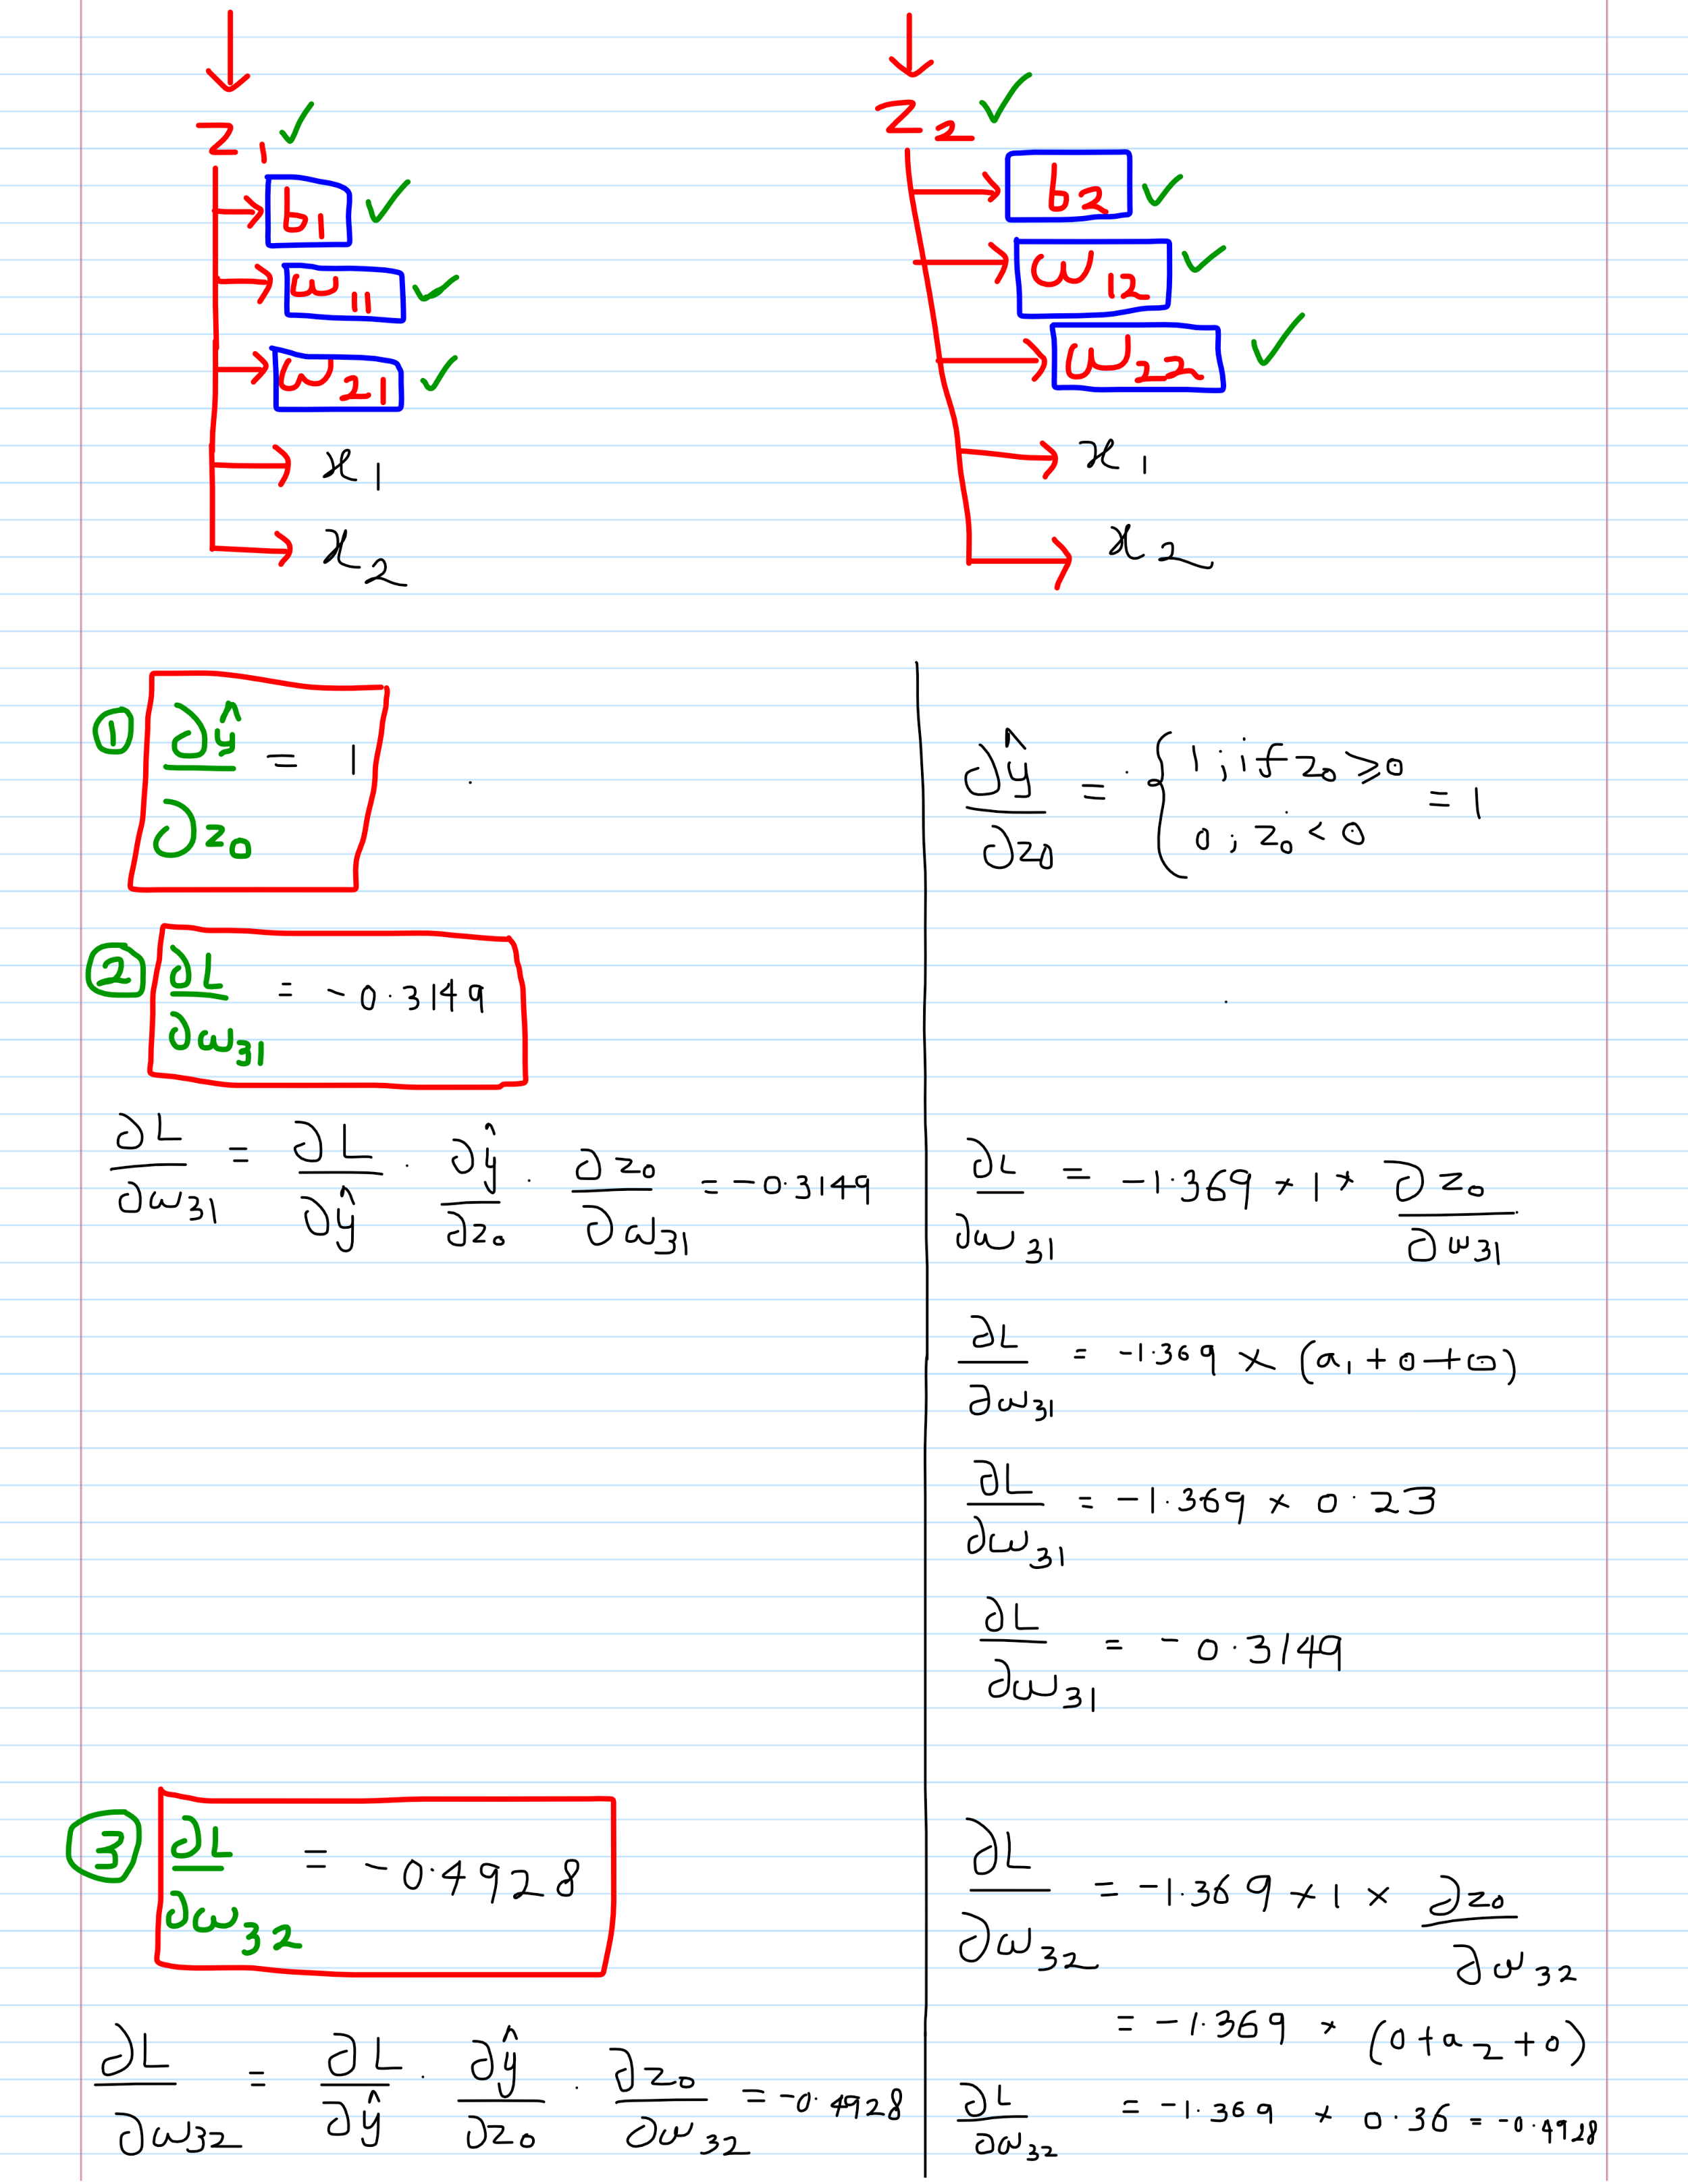 z₁ ✓
b₁ ✓
w₁₁ ✓
w₂₁ ✓
x₁
x₂
z₂ ✓
b₂ ✓
w₁₂ ✓
w₂₂ ✓
x₁
x₂
① ∂ŷ/∂z₀ = 1
∂ŷ/∂z₀ = { 1 ; if z₀ ⩾ 0
0 ; z₀ < 0 = 1
② ∂L/∂w₃₁ = -0.3149
∂L/∂w₃₁ = ∂L/∂ŷ · ∂ŷ/∂z₀ · ∂z₀/∂w₃₁ = -0.3149
∂L/∂w₃₁ = -1.369 × 1 × ∂z₀/∂w₃₁
∂L/∂w₃₁ = -1.369 × (a₁ + 0 + 0)
∂L/∂w₃₁ = -1.369 × 0.23
∂L/∂w₃₁ = -0.3149
③ ∂L/∂w₃₂ = -0.4928
∂L/∂w₃₂ = ∂L/∂ŷ · ∂ŷ/∂z₀ · ∂z₀/∂w₃₂ = -0.4928
∂L/∂w₃₂ = -1.369 × 1 × ∂z₀/∂w₃₂
= -1.369 × (0 + a₂ + 0)
∂L/∂w₃₂ = -1.369 × 0.36 = -0.4928